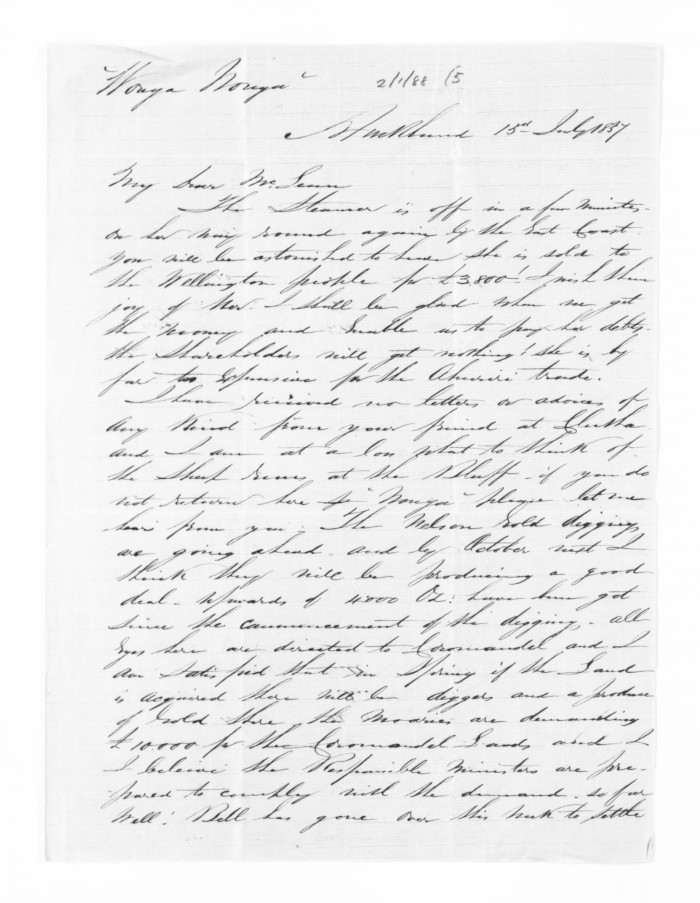 "Wonga Wonga" 2/1/88 (5
Auckland 15th July 1857
My dear McLean
The Steamer is off in a few minutes
on her way round again by the East Coast.
you will be astonished to hear she is sold to
the Wellington people for £3,800! I wish them
joy of her. I shall be glad when we get
the money and enable us to pay her debts.
the Shareholders will get nothing! She is by
far too expensive for the Ahuriri trade.
I have received no letters or advices of
any kind from your friend at Clutha
and I am at a loss what to think of
the Sheep runs at the Bluff - if you do
not return here pr "Wonga" please let me
hear from you. The Nelson Gold diggings
are going ahead. and by October next I
think they will be producing a good
deal - upwards of 4000 Oz: have been got
since the commencement of the digging. all
Eyes here are directed to Coromandel and I
am satisfied that in Spring if the Land
is acquired there will be diggers and a produce
of Gold there. the Maories are demanding
£10000 for the Coromandel Lands and I
I beleive the Responsible Ministers are pre-
pared to comply with the demand. so far
well! Bell has gone over this week to settle